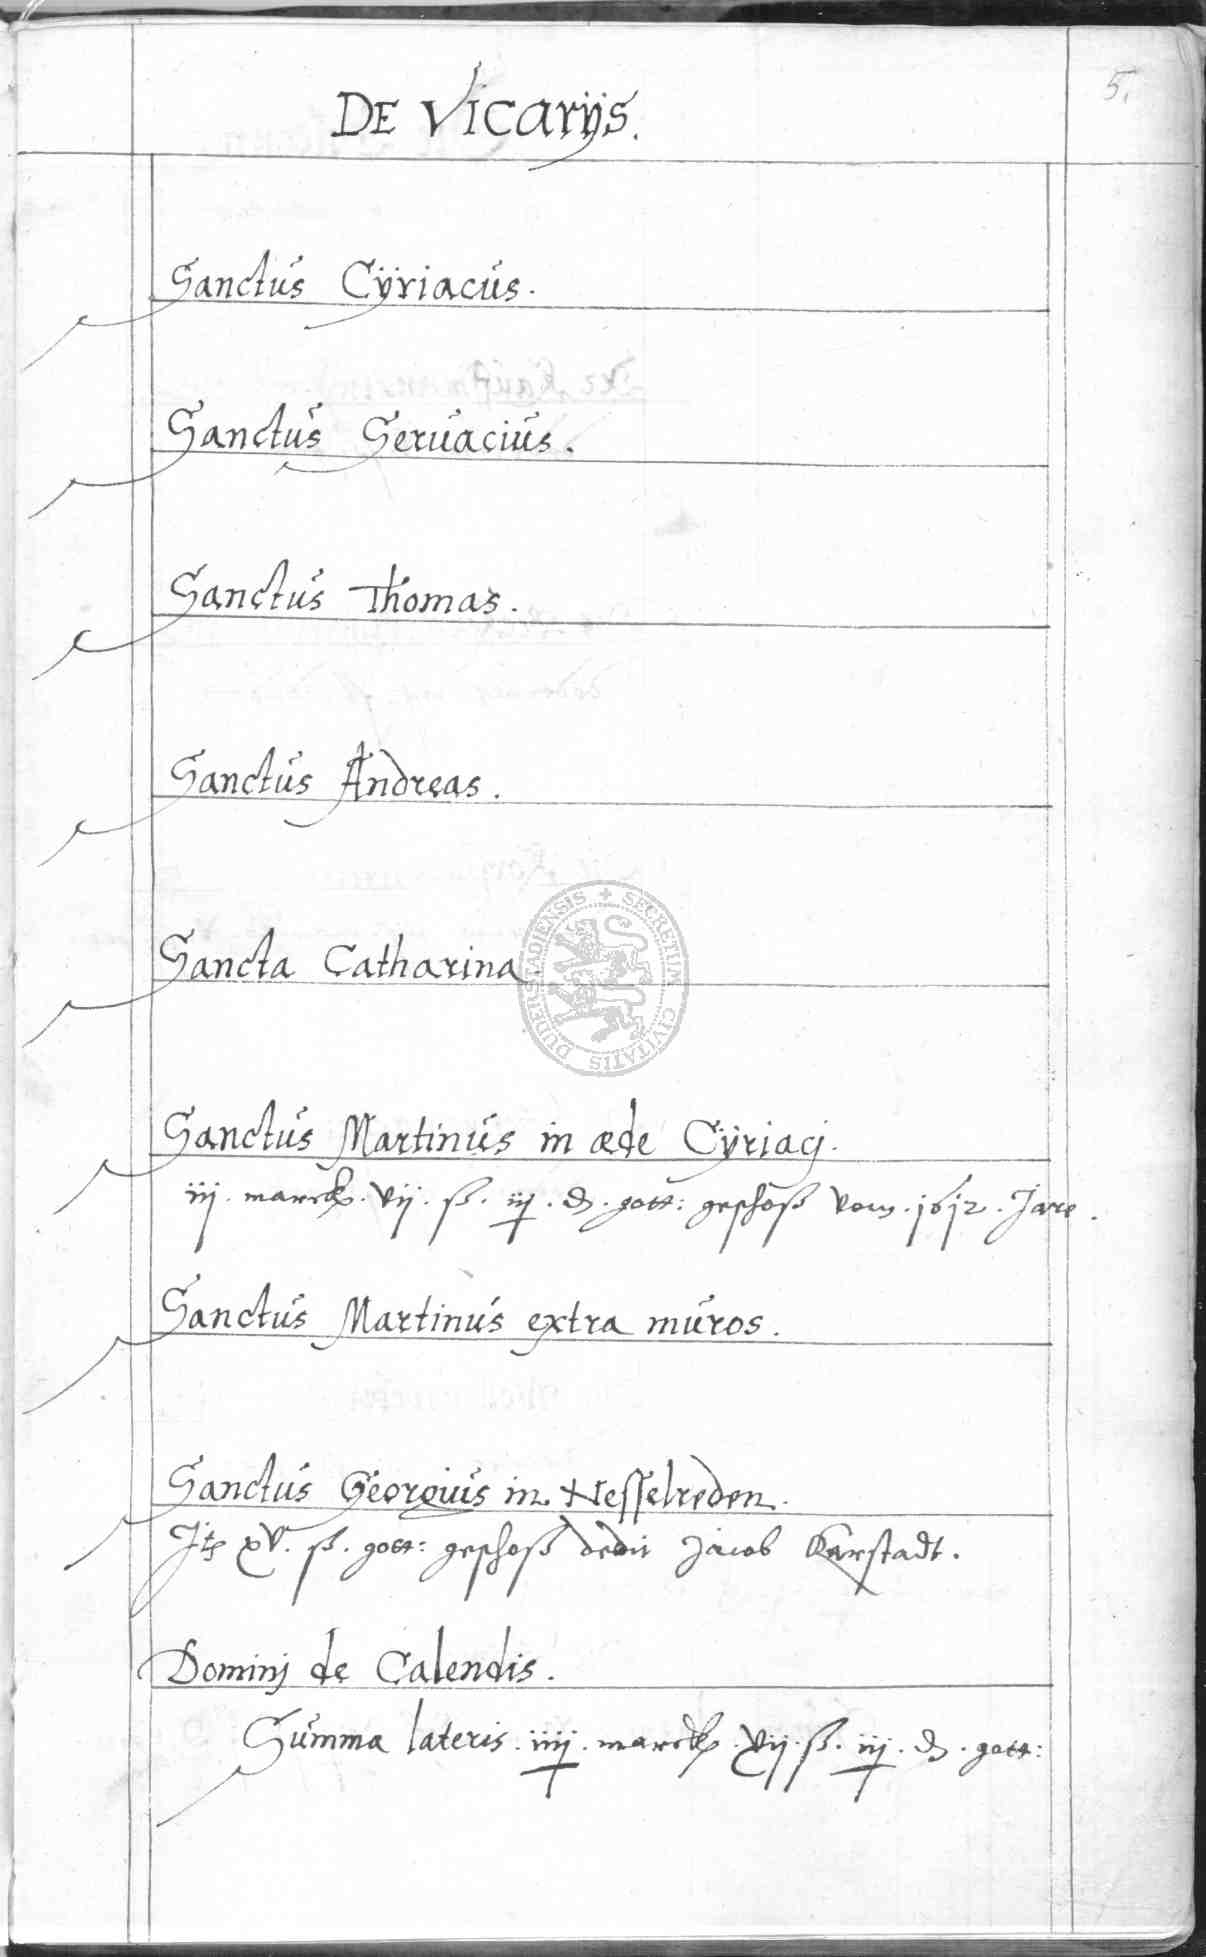 5.
DE Vicarijs.
Sanctus Cÿriacus.
Sanctus Seruacius.
Sanctus Thomas.
Sanctus Andreas.
Sancta Catharina.
SECRETUM CIVITATIS DUDERSTADIENSIS
Sanctus Martinus in æde Cÿriacj.
iij. marck. vij. ß. iij. d. gott: geschoß vom. 1612. Jare.
Sanctus Martinus extra muros.
Sanctus Georgius in Nesselreden.
Jtem xv. ß. gott: geschoß dedit Jacob Karstadt.
Dominj de Calendis.
Summa lateris. iiij. marck. vij. ß. iij. d. gott: